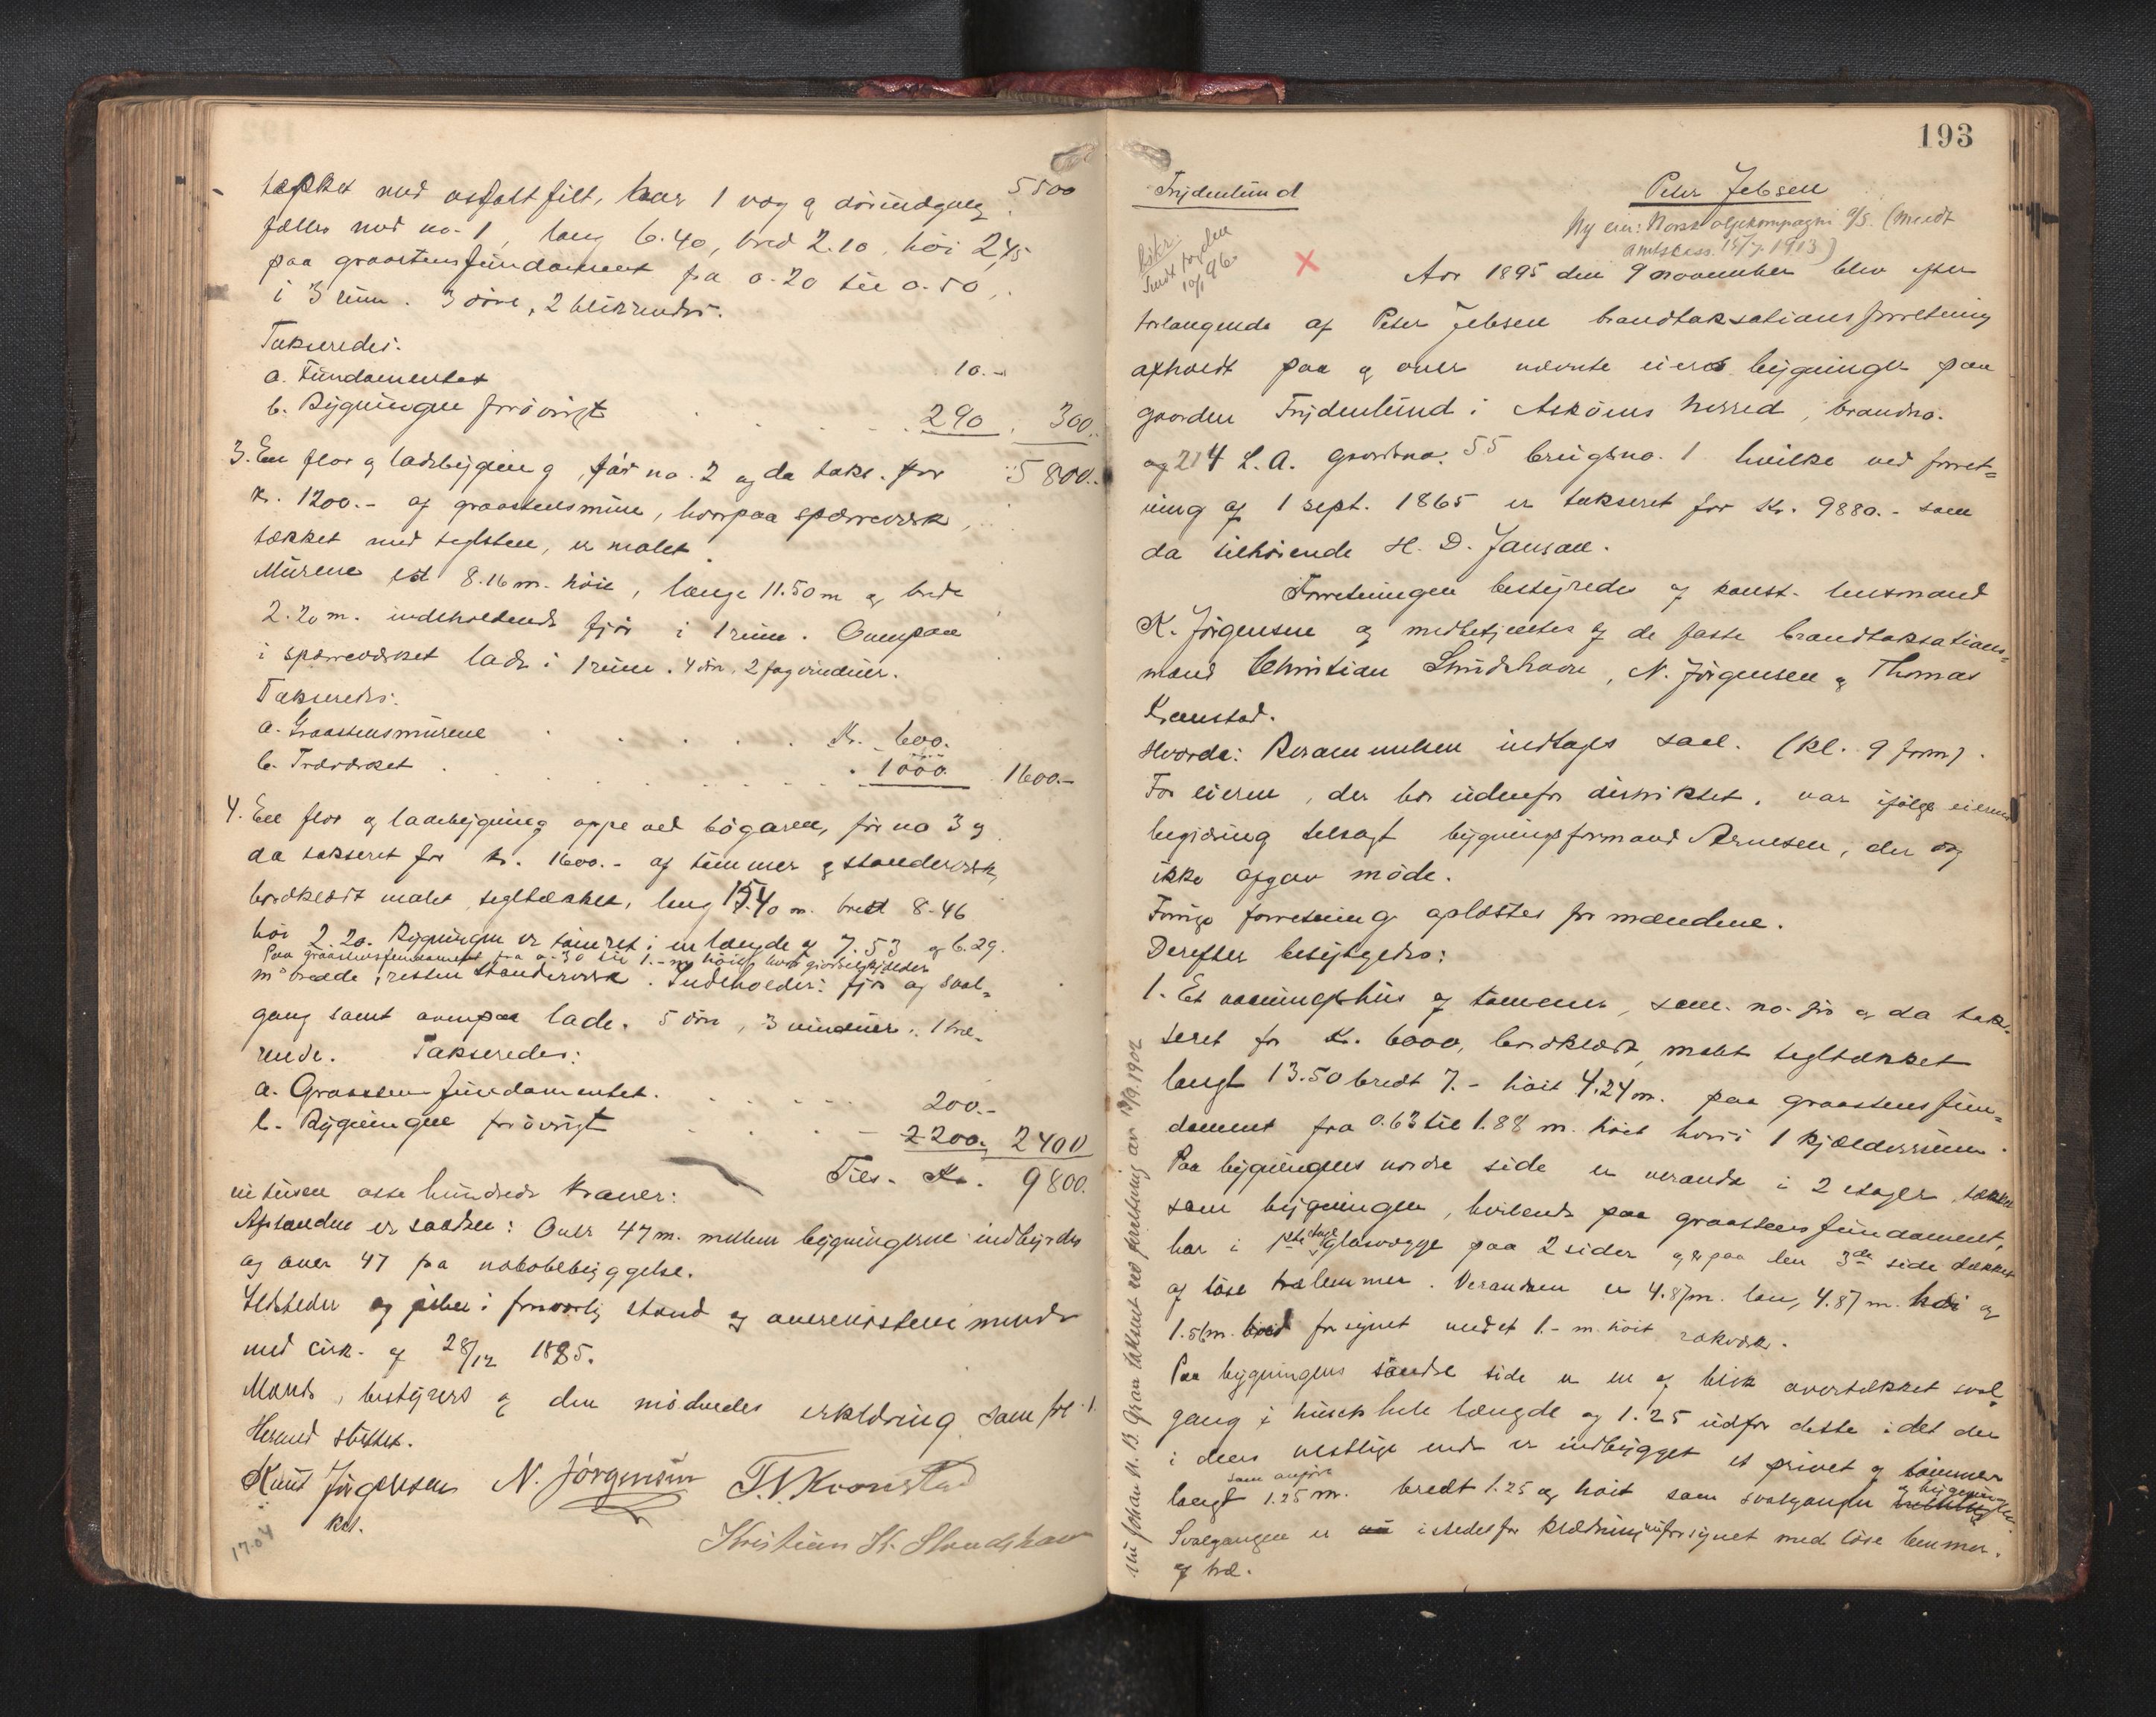 tækket med asfaltfilt, har 1 væg og dörindgang 5500
fælles med no. 1, lang 6.40, bred 2.10, höi 2,45
paa graastensfundament fra 0.20 til 0.50,
i 3 rum. 3 döre, 2 blikrender.
Takseredes:
a. Fundamentet 10.-
b. Bygningen forövrigt 290 300.
3. En flor og ladebygning, för no. 2 og da takс. for 5800.-
kr. 1200.- af graastensmure, hvorpaa sperreværk,
tækket med teglsten, er malet.
Murene er 8.16 m. höie, længe 11.50 m og brede
2.20 m. indeholdende fjös i 1 rum. Ovenpaa
i sperreværket lade i 1 rum. 4 dör, 2 fag vinduer.
Takseredes:
a. Graastensmurene Kr. 600.
b. Træværket 1000. 1600.-
4. En flor og ladebygning oppe ved bögaren, för no 3 og
da takseret for kr. 1600.- af tömmer og standerværk,
bordklædt malet, tegltækket, lang 15.40 m. bred 8.46
höi 2.20. Bygningen er tömret i en længde af 7.53 og 6.29.
Paa graastensfundament fra 0.30 til 1.- m höit, hvori gjödselkjelder
m brede, resten standerværk. Indeholder: fjös og sval-
gang samt ovenpaa lade. 5 dör, 3 vinduer. 1 træ-
rende. Takseredes:
a. Graastensfundamentet. 200.-
b. Bygningen forövrigt 2200. 2400
Tils. Kr. 9800.
ni tusen otte hundrede kroner:
Afstandene er saadan: Over 47 m. mellem bygningerne indbyrdes
og over 47 fra nabobebyggelse.
Ildsteder og piber i forsvarlig stand og overensstemmende
med cirk. af 28/12 1885.
Mænds, bestyrers og den mödendes erklæring som fol. 1.
Hermed sluttet.
Knut Jörgensen N. Jörgensen T. N. Kronstad
kst.
Kristian K. Skudshavn
17.04
193
Frydenlund Peter Jebsen
Ny eier: Norsk oljekompagni a/s. (medt
amtsbess. 15/7. 1913)
10/1 96.
Aar 1895 den 9 november blev efter
forlangende af Peter Jebsen brandtaksationsforretning
afholdt paa og over nævnte eiers bygninger paa
gaarden Frydenlund i Asköens herred, brandno.
og 214 L.A. gaardsno. 55 brugsno. 1 hvilke ved forret=
ning af 1 sept. 1865 er takseret for Kr. 9880.- som
da tilhörende H. D. Janson.
Forretningen bestyredes af konst. lensmand
K. Jörgensen og medbetjentes af de faste brandtaksations=
mænd Christian Skudshavn, N. Jörgensen og Thomas
Kronstad.
Hvorda: Berammelsen indtages saal. (kl. 9 form).
For eieren, der bor udenfor distriktet, var ifölge eierens
begjæring tilsagt bygningsformand Arnesen, der dog
ikke afgav möde.
Forrige forretning oplæstes for mændene.
Derefter besigtigedes:
1. Et vaaningshus af tömmer, sam. no. för og da tak-
seret for Kr. 6000, bordklædt, malet tegltækket
langt 13.50 bredt 7.- höit 4.24 m. paa graastensfun=
dament fra 0.63 til 1.88 m. höit hvori 1 kjælderrum.
Paa bygningens nordre side er veranda i 2 etager, tækket
som bygningen, hvilende paa graastensfundament,
har i 1ste etage glasvægge paa 2 sider og er paa den 3de side dækket
af löse trælemmer. Verandaen er 4.87 m. lan, 4.87 m. höi og
1.56 m. bred forsynet med et 1.- m. höit rækværk.
Paa bygningens söndre side er en af blik overtækket sval-
gang i husets hele længde og 1.25 udfor dette idet der
i dens vestlige ende er indbygget et privet af tömmer
langt som anfört 1.25 m. bredt 1.25 og höit som svalgangen og bygningen.
Svalgangen er istedetfor klædning forsynet med löse lemmer.
af træ.
nu Johan N. B. Gran takseret ved forretning av 19/9. 1902